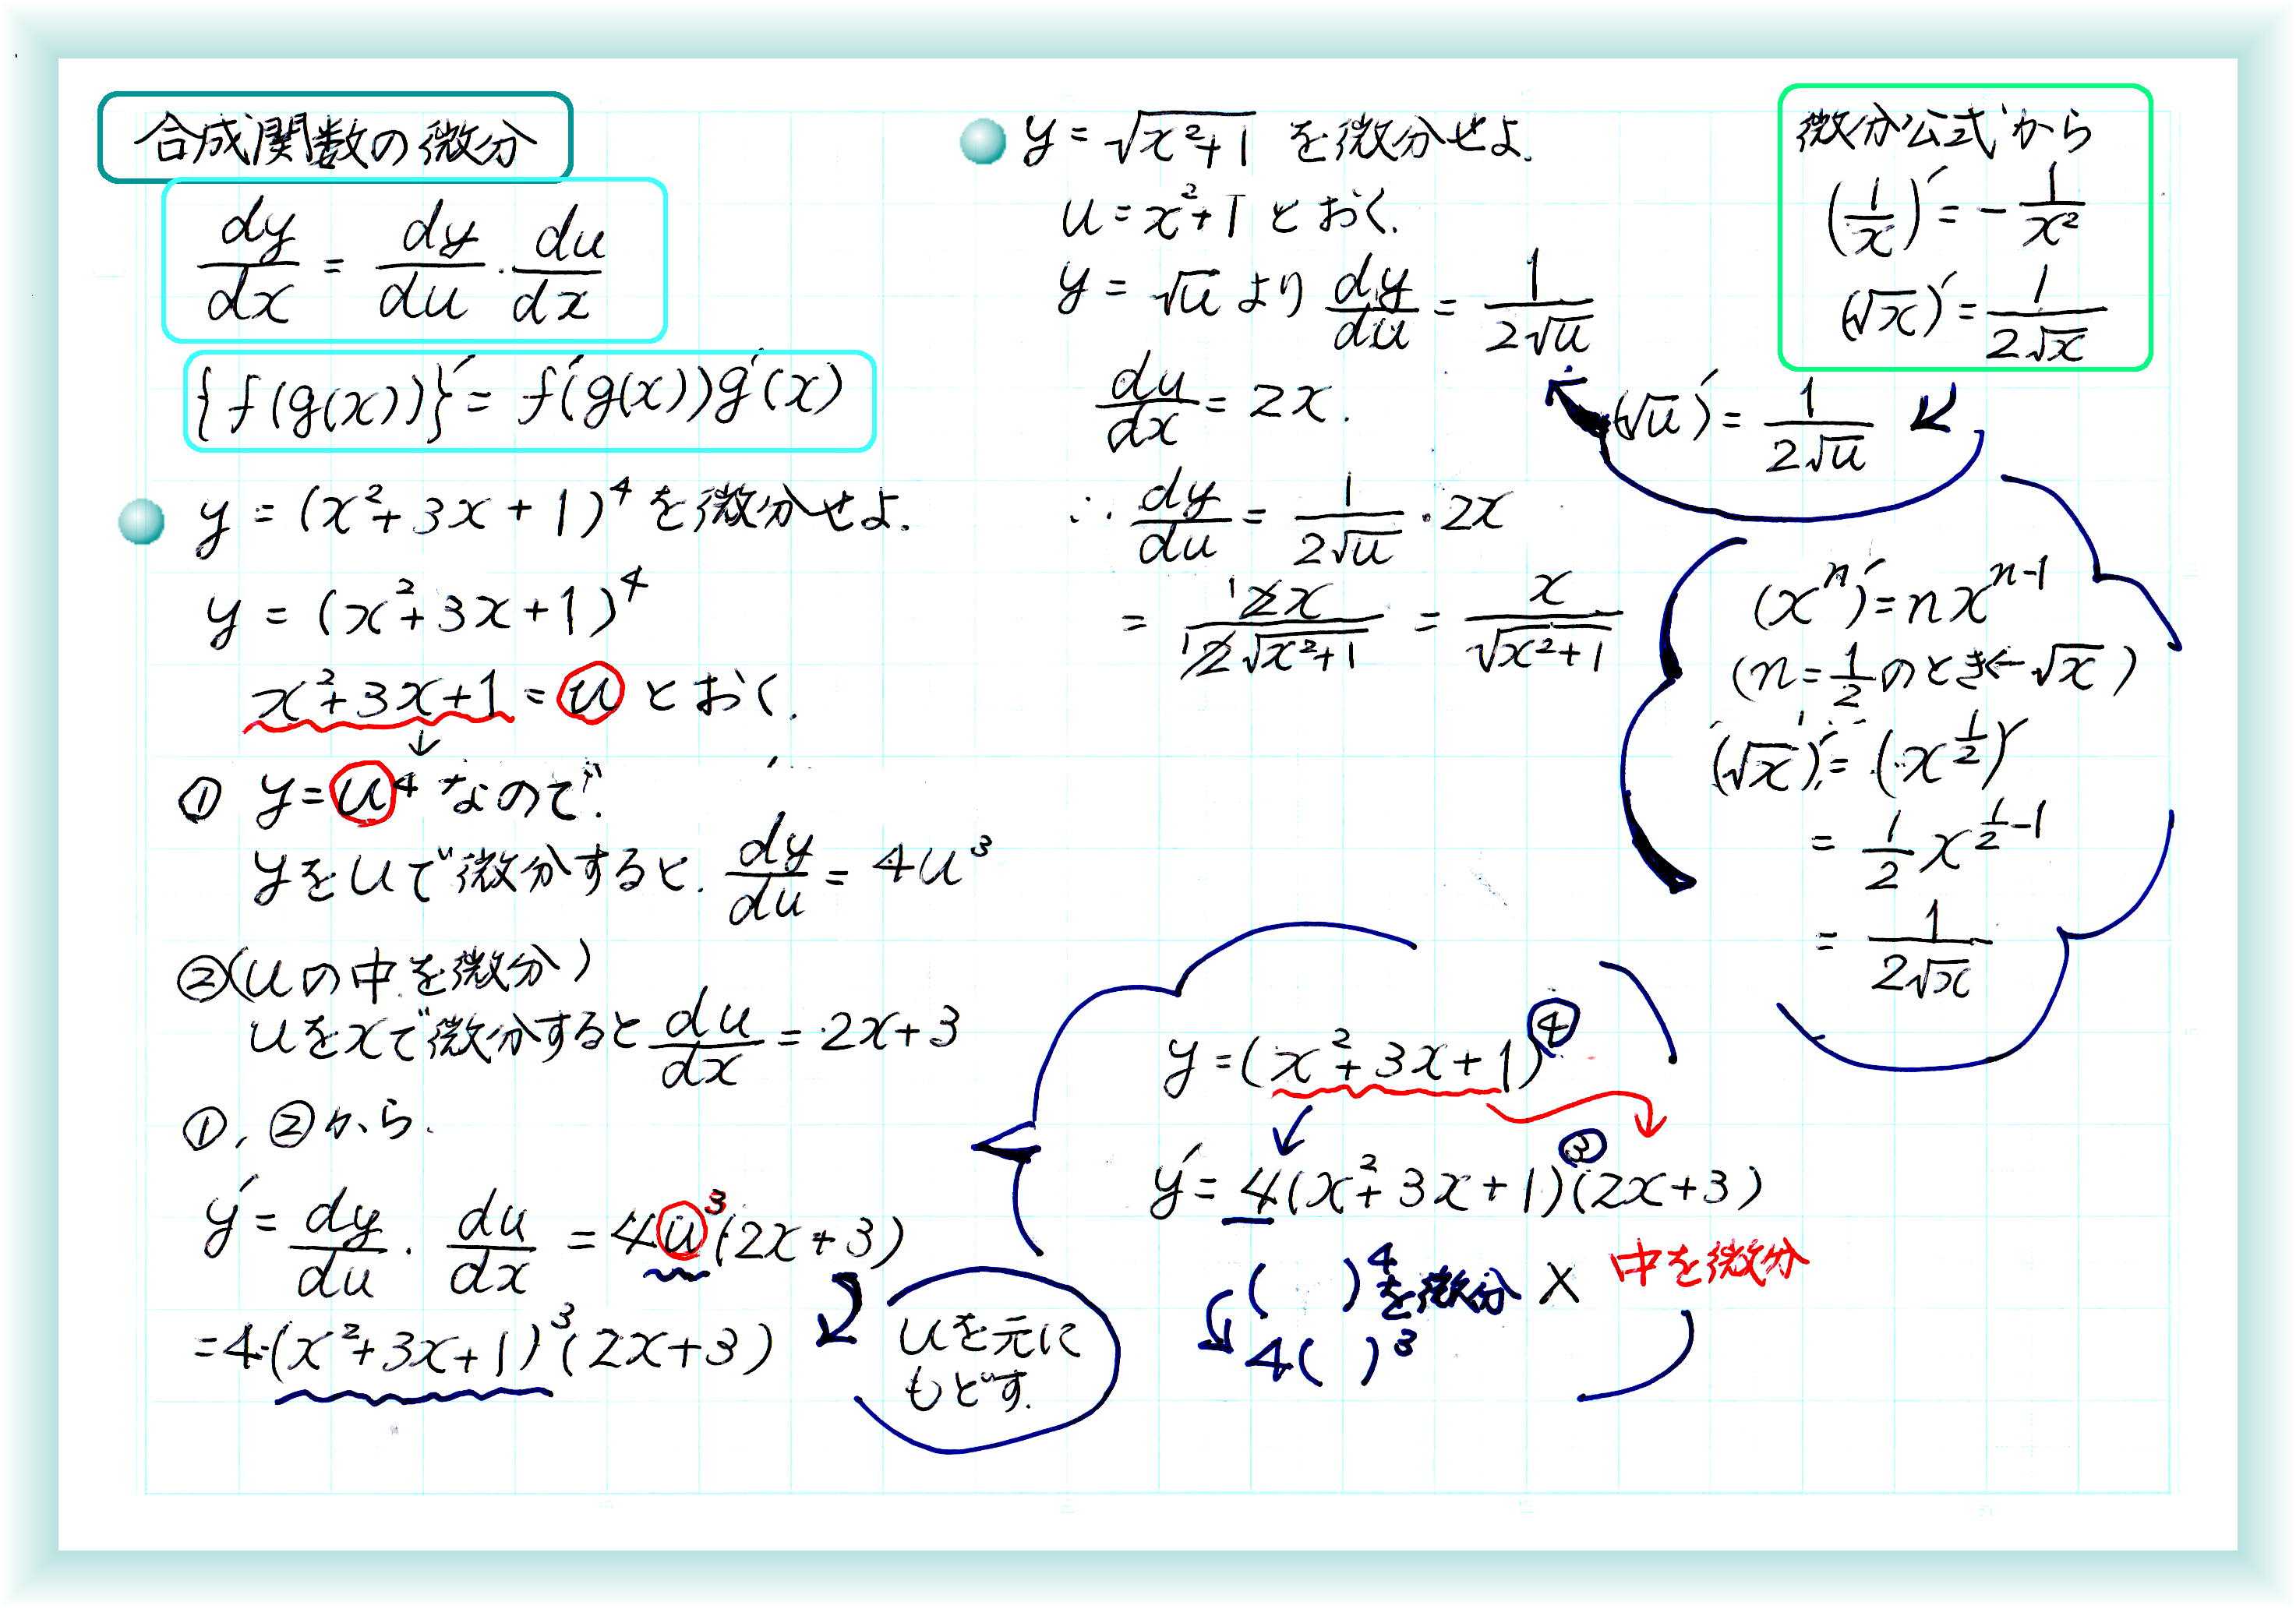 合成関数の微分
dy/dx = dy/du · du/dx
{f(g(x))}' = f'(g(x))g'(x)
y = (x²+3x+1)⁴を微分せよ.
y = (x²+3x+1)⁴
x²+3x+1 = u とおく.
↓
① y=u⁴ なので.
yをuで微分すると. dy/du = 4u³
②(uの中を微分)
uをxで微分すると du/dx = 2x+3
①, ②から.
y' = dy/du · du/dx = 4u³(2x+3)
=4·(x²+3x+1)³(2x+3)
uを元に
もどす.
y = √(x²+1) を微分せよ.
u = x²+1 とおく.
y = √u より dy/du = 1/(2√u)
du/dx = 2x.
∴ dy/du = 1/(2√u) · 2x
= 2x/(2√(x²+1)) = x/√(x²+1)
微分公式から
(1/x)' = -1/x²
(√x)' = 1/(2√x)
(√u)' = 1/(2√u)
(xⁿ)' = nxⁿ⁻¹
(n=1/2のとき←√x)
(√x)' = (x^(1/2))'
= 1/2 x^(1/2-1)
= 1/(2√x)
y=(x²+3x+1)⁴
y' = 4(x²+3x+1)³(2x+3)
( )⁴を微分 × 中を微分
4( )³